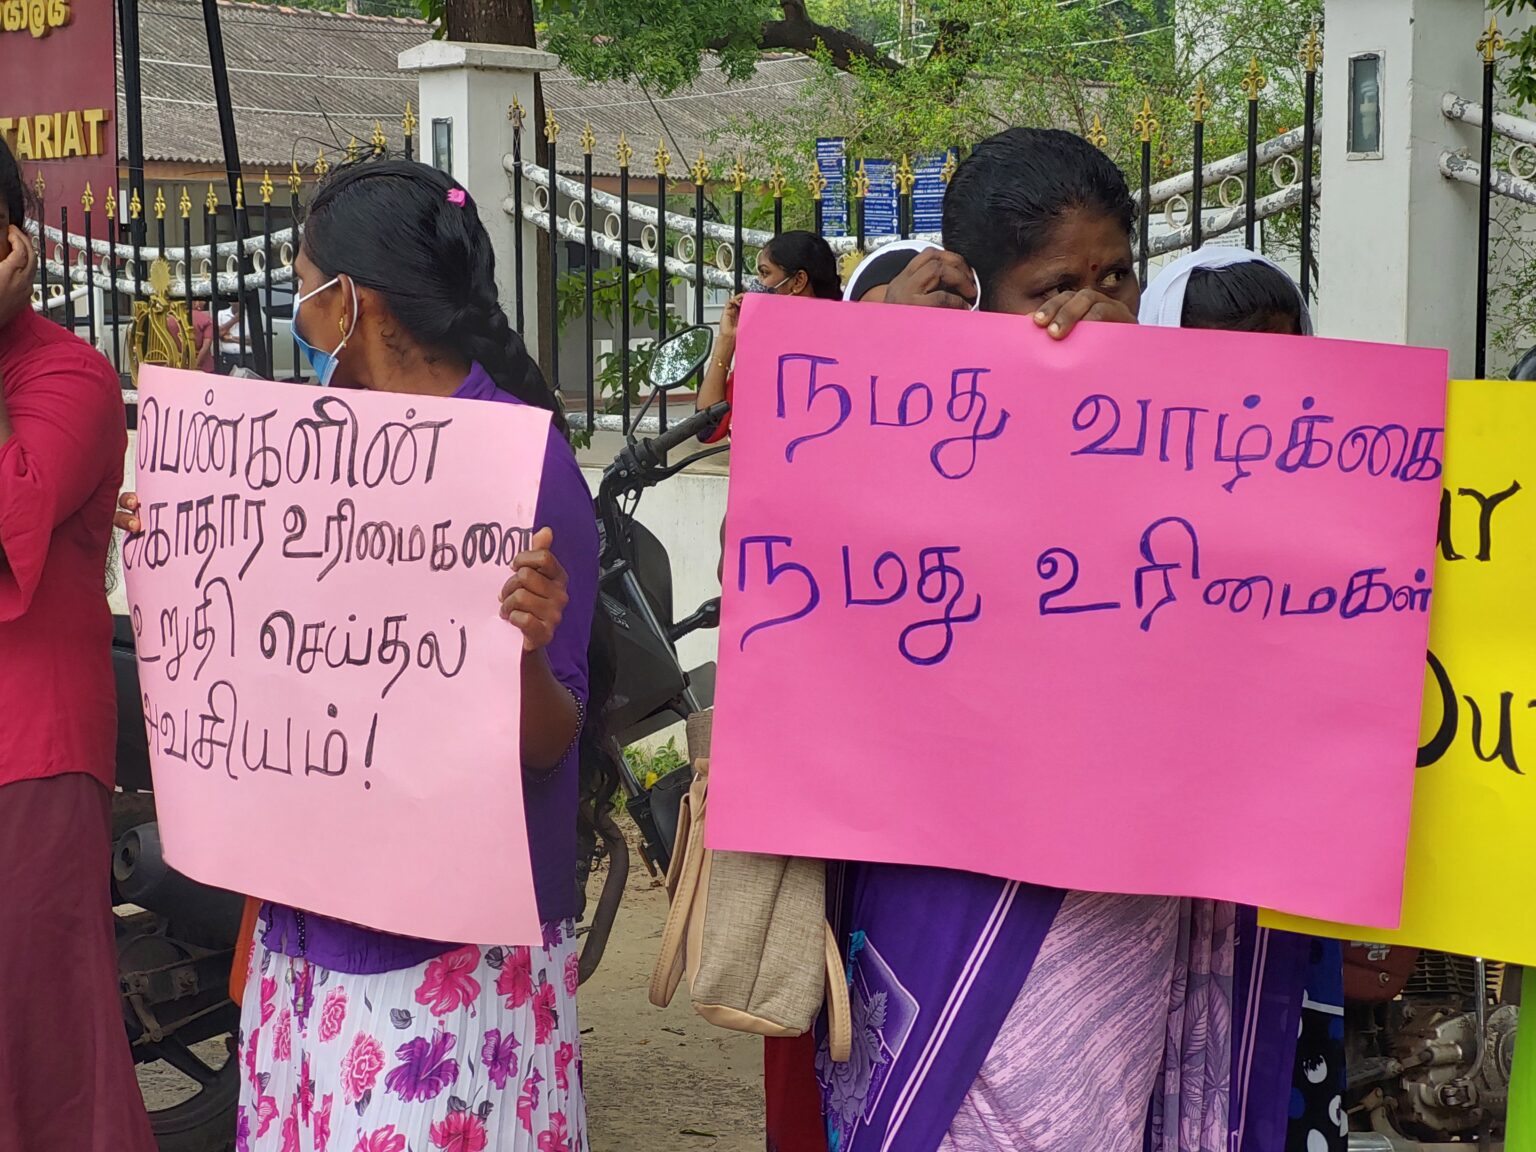 TARIAT
பெண்களின்
சுகாதார உரிமைகளை
உறுதி செய்தல்
அவசியம்!
நமது வாழ்க்கை
நமது உரிமைகள்